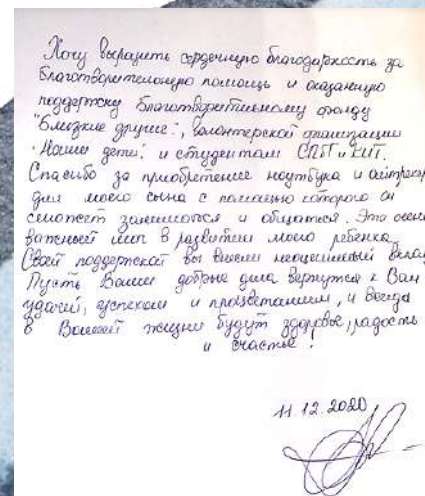 Хочу выразить сердечную благодарность за
благотворительную помощь и оказанную
поддержку Благотворительному фонду
"Близкие другие", волонтерской организации
"Наши дети" и студентам СПб
Спасибо за приобретение ноутбука и айтрекера
для моего сына с помощью которого он
сможет заниматься и общаться. Это очень
важный шаг в развитии моего ребенка.
Своей поддержкой вы внесли неоценимый вклад
Пусть Ваши добрые дела вернутся к Вам
удачей, успехом и процветанием, и всегда
в Вашей жизни будут здоровье, радость
и счастье!
11.12.2020